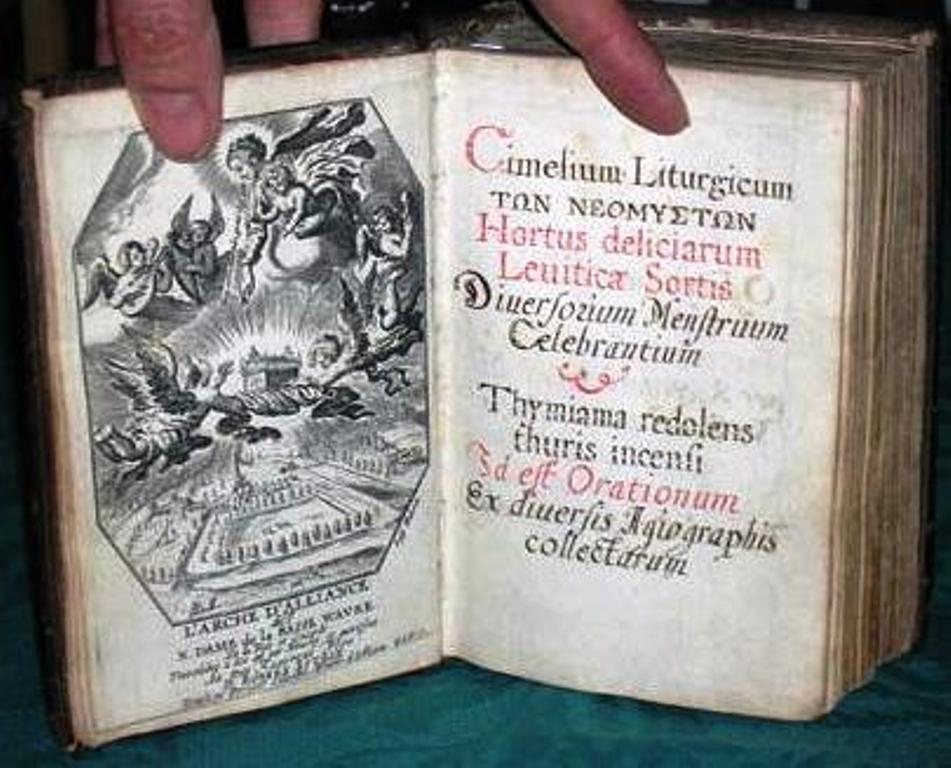 L'ARCHE D'ALLIANCE
N. DAME de la BASSE WAVRE
Cimelium Liturgicum
ΤΩΝ ΝΕΟΜΥΣΤΩΝ
Hortus deliciarum
Leuiticæ Sortis
Diuersorium Menstruum
Celebrantium
Thymiama redolens
thuris incensi
Id est Orationum
Ex diuersis Agiographis
collectarum